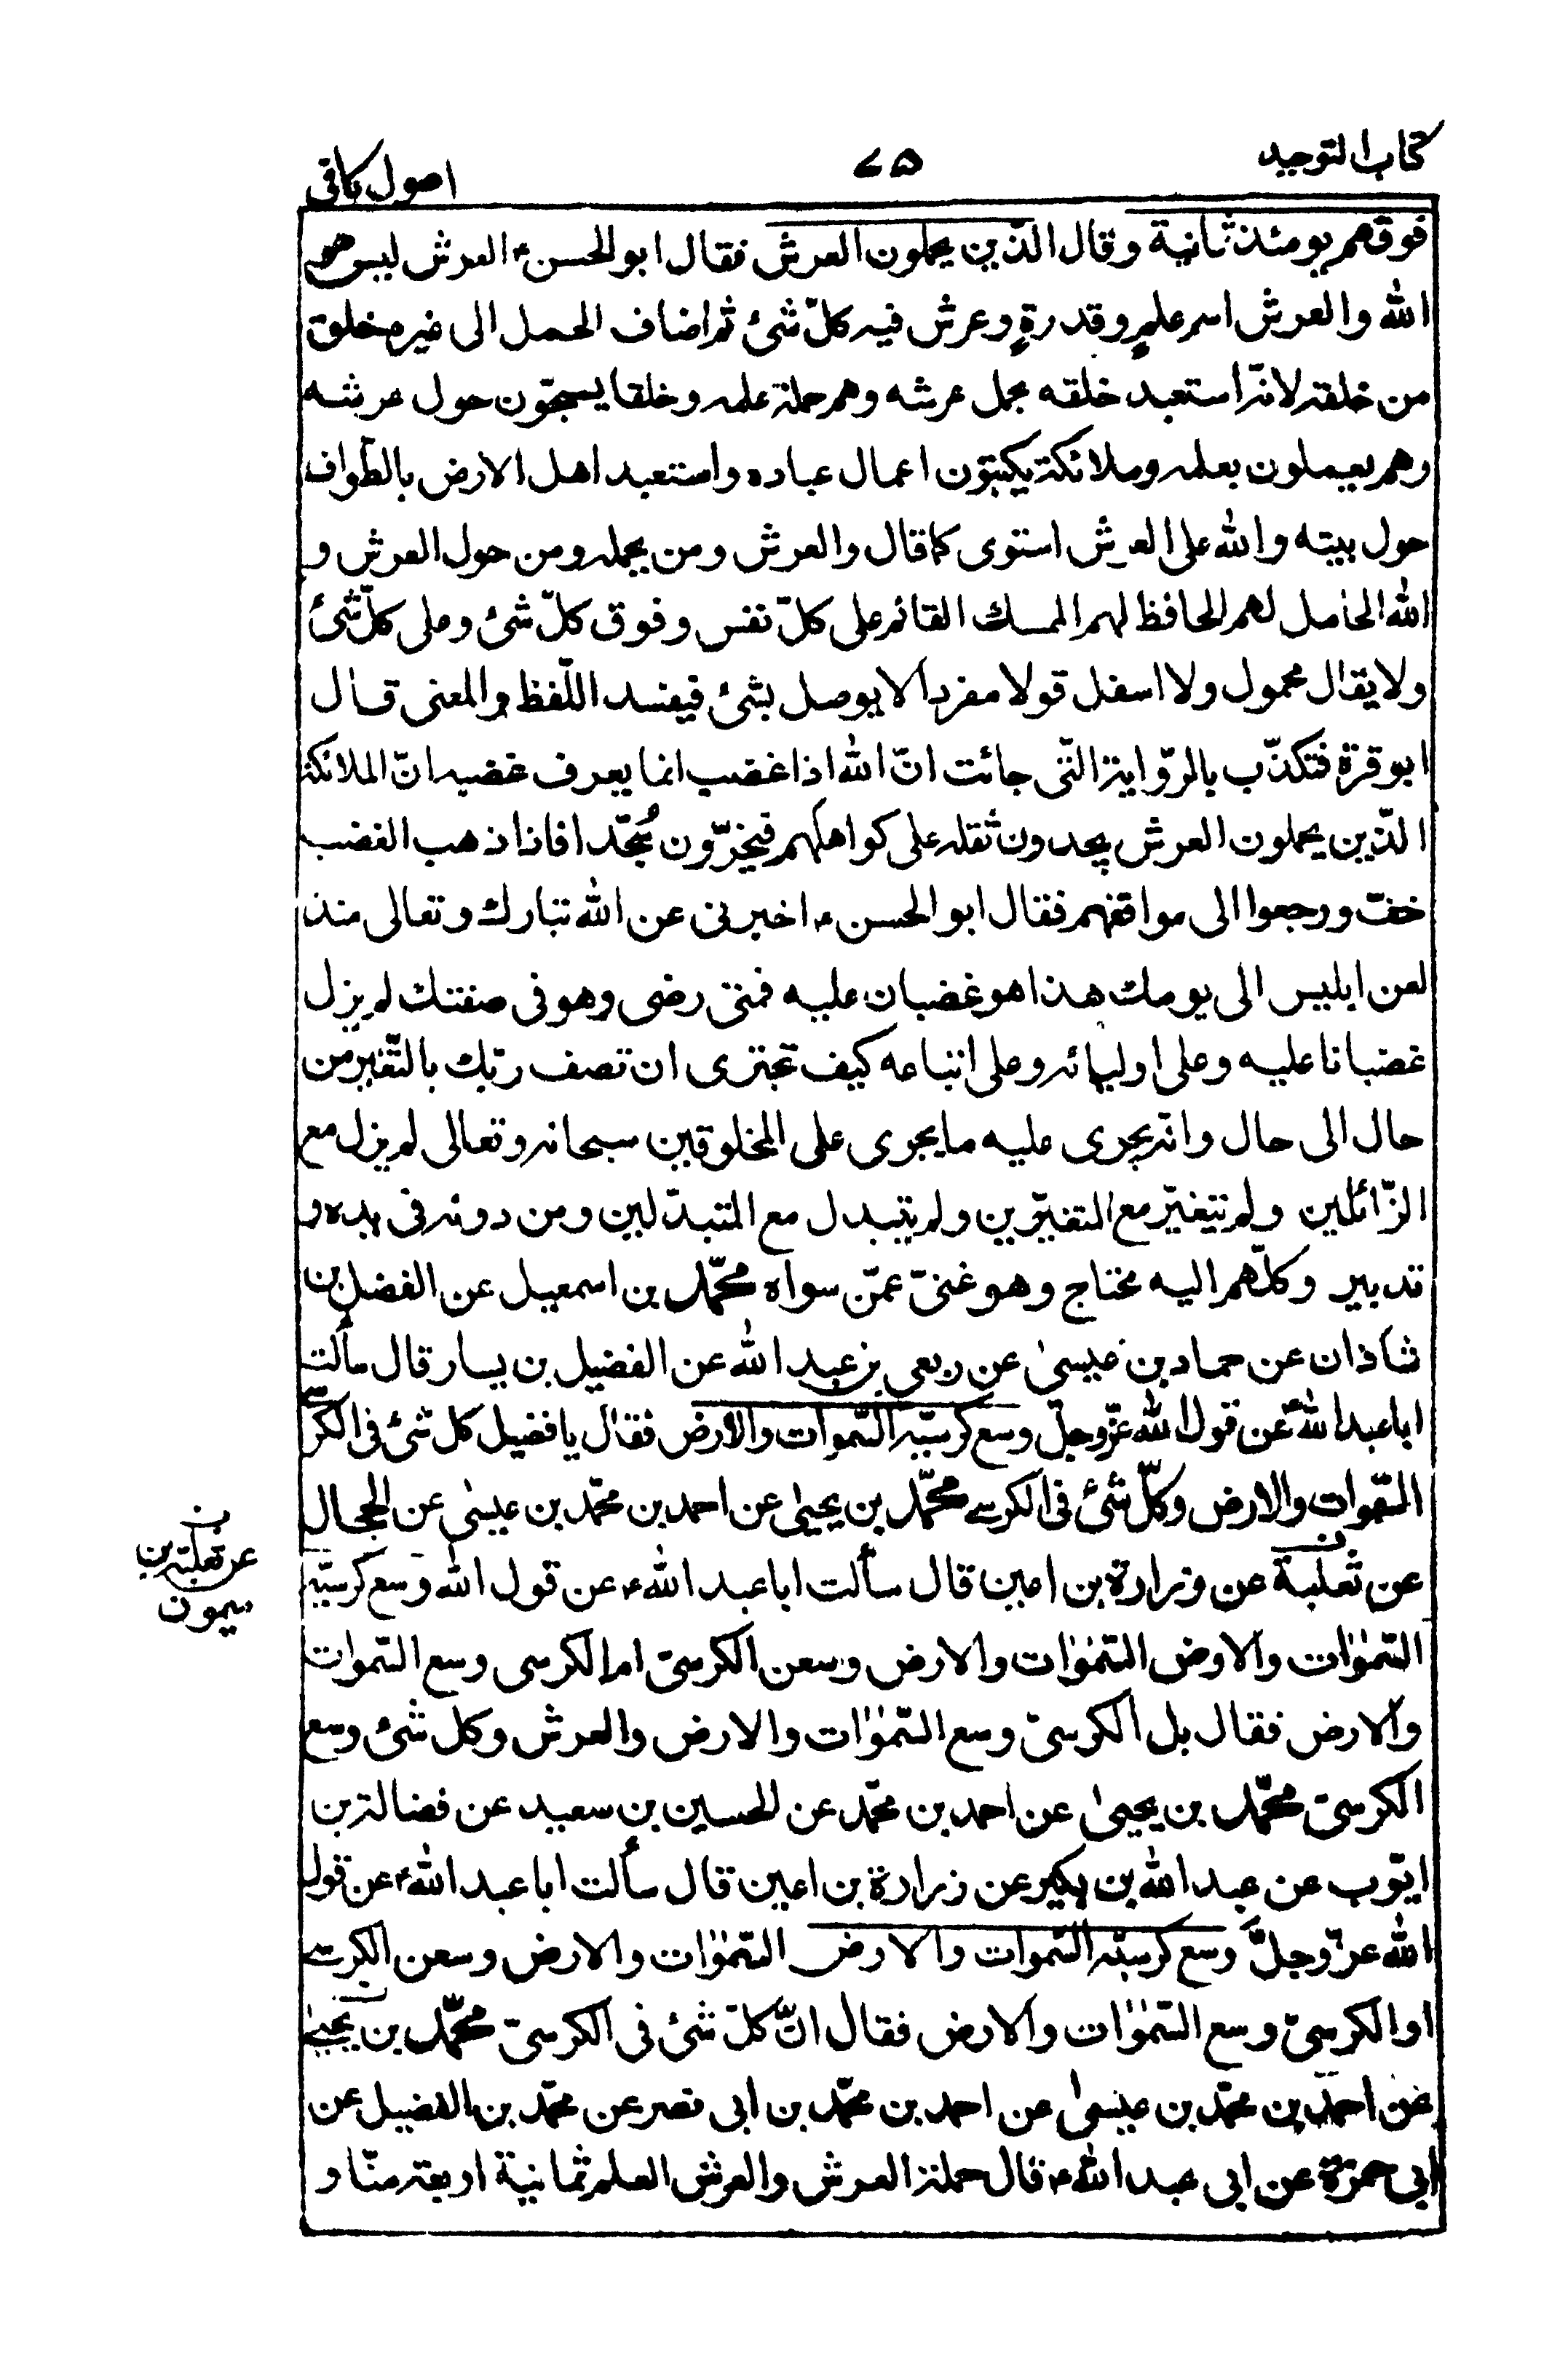 كتاب التوحيد
۷۵
اصول كافى
فوقهم يومئذ ثمانية وقال الذّين يحملون العرش فقال ابو الحسن ع العرش ليس هو
الله والعرش اسم علمٍ وقدرةٍ وعرش فيه كلّ شئ ثم اضاف الحمل الى غيره خلق
من خلقه لانّه استعبد خلقه بحمل عرشه وهم حملة علمه وخلقا يسبحّون حول عرشه
وهم يعملون بعلمه وملائكة يكتبون اعمال عباده واستعبد اهل الارض بالطّواف
حول بيته والله على العرش استوى كما قال والعرش ومن يحمله ومن حول العرش و
الله الحامل لهم الحافظ لهم الممسك القائم على كلّ نفس وفوق كلّ شئ وعلى كلّ شئ
ولا يقال محمول ولا اسفل قولا مفردا لا يوصل بشئ فيفسد اللّفظ والمعنى قال
ابو قرة فتكذّب بالرّواية الّتى جائت انّ الله اذا غضب انما يعرف غضبه انّ الملائكة
الذّين يحملون العرش يجدون ثقله على كواهلهم فيخرّون سُجّدا فاذا ذهب الغضب
خفّ ورجعوا الى مواقفهم فقال ابو الحسن ع اخبرنى عن الله تبارك وتعالى منذ
لعن ابليس الى يومك هذا هو غضبان عليه فمتى رضى وهو فى صفتك لم يزل
غضبانا عليه وعلى اوليائه وعلى اتباعه كيف تجترى ان تصف ربّك بالتّغيير من
حال الى حال وانّه يجرى عليه ما يجرى على المخلوقين سبحانه وتعالى لم يزل مع
الزّائلين ولم يتغيّر مع المتغيّرين ولم يتبدل مع المتبدّلين ومن دونه فى يده و
تدبير وكلّهم اليه محتاج وهو غنىّ عمّن سواه محمّد بن اسمعيل عن الفضل بن
شاذان عن حماد بن عيسىٰ عن ربعى بن عبد الله عن الفضيل بن يسار قال سألت
ابا عبد الله ع عن قول الله عزّ وجلّ وسع كرسيّه السّموات والارض فقال يا فضيل كل شئ فى الكرسى
السّموات والارض وكلّ شئ فى الكرسى محمّد بن يحيىٰ عن احمد بن محمّد بن عيسىٰ عن الحجال
عن ثعلبة عن زرارة بن اعين قال سألت ابا عبد الله ع عن قول الله وسع كرسيّه
السّمٰوٰات والارض السّمٰوٰات والارض وسعن الكرسىّ ام الكرسى وسع السّموات
والارض فقال بل الكرسىّ وسع السّمٰوٰات والارض والعرش وكل شئ وسع
الكرسىّ محمّد بن يحيىٰ عن احمد بن محمّد عن الحسين بن سعيد عن فضالة بن
ايّوب عن عبد الله بن بكير عن زرارة بن اعين قال سألت ابا عبد الله ع عن قول
الله عزّ وجلّ وسع كرسيّه السّموات والارض السّمٰوٰات والارض وسعن الكرسى
او الكرسىّ وسع السّمٰوٰات والارض فقال انّ كلّ شئ فى الكرسىّ محمّد بن يحيىٰ
عن احمد بن محمّد بن عيسىٰ عن احمد بن محمّد بن ابى نصر عن محمّد بن الفضيل عن
ابى حمزة عن ابى عبد الله ع قال حملة العرش والعرش العلم ثمانية اربعة منّا و
ن
عن ثعلبة بن
ميمون